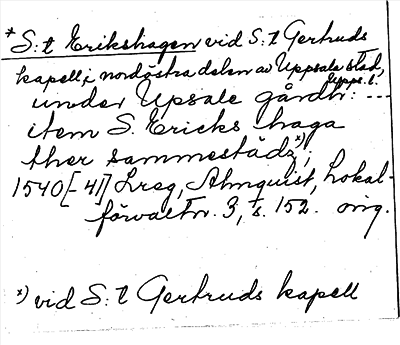 * S:t Erikshagen vid S:t Gertruds
kapell, i nordöstra delen av Uppsala stad,
Upps. l.
under Upsale gårdh: ---
item S. Ericks haga
ther sammestädz x);
1540[-41] Lreg, Almquist, Lokal-
förvaltn. 3, s. 152. orig.
x) vid S:t Gertruds kapell